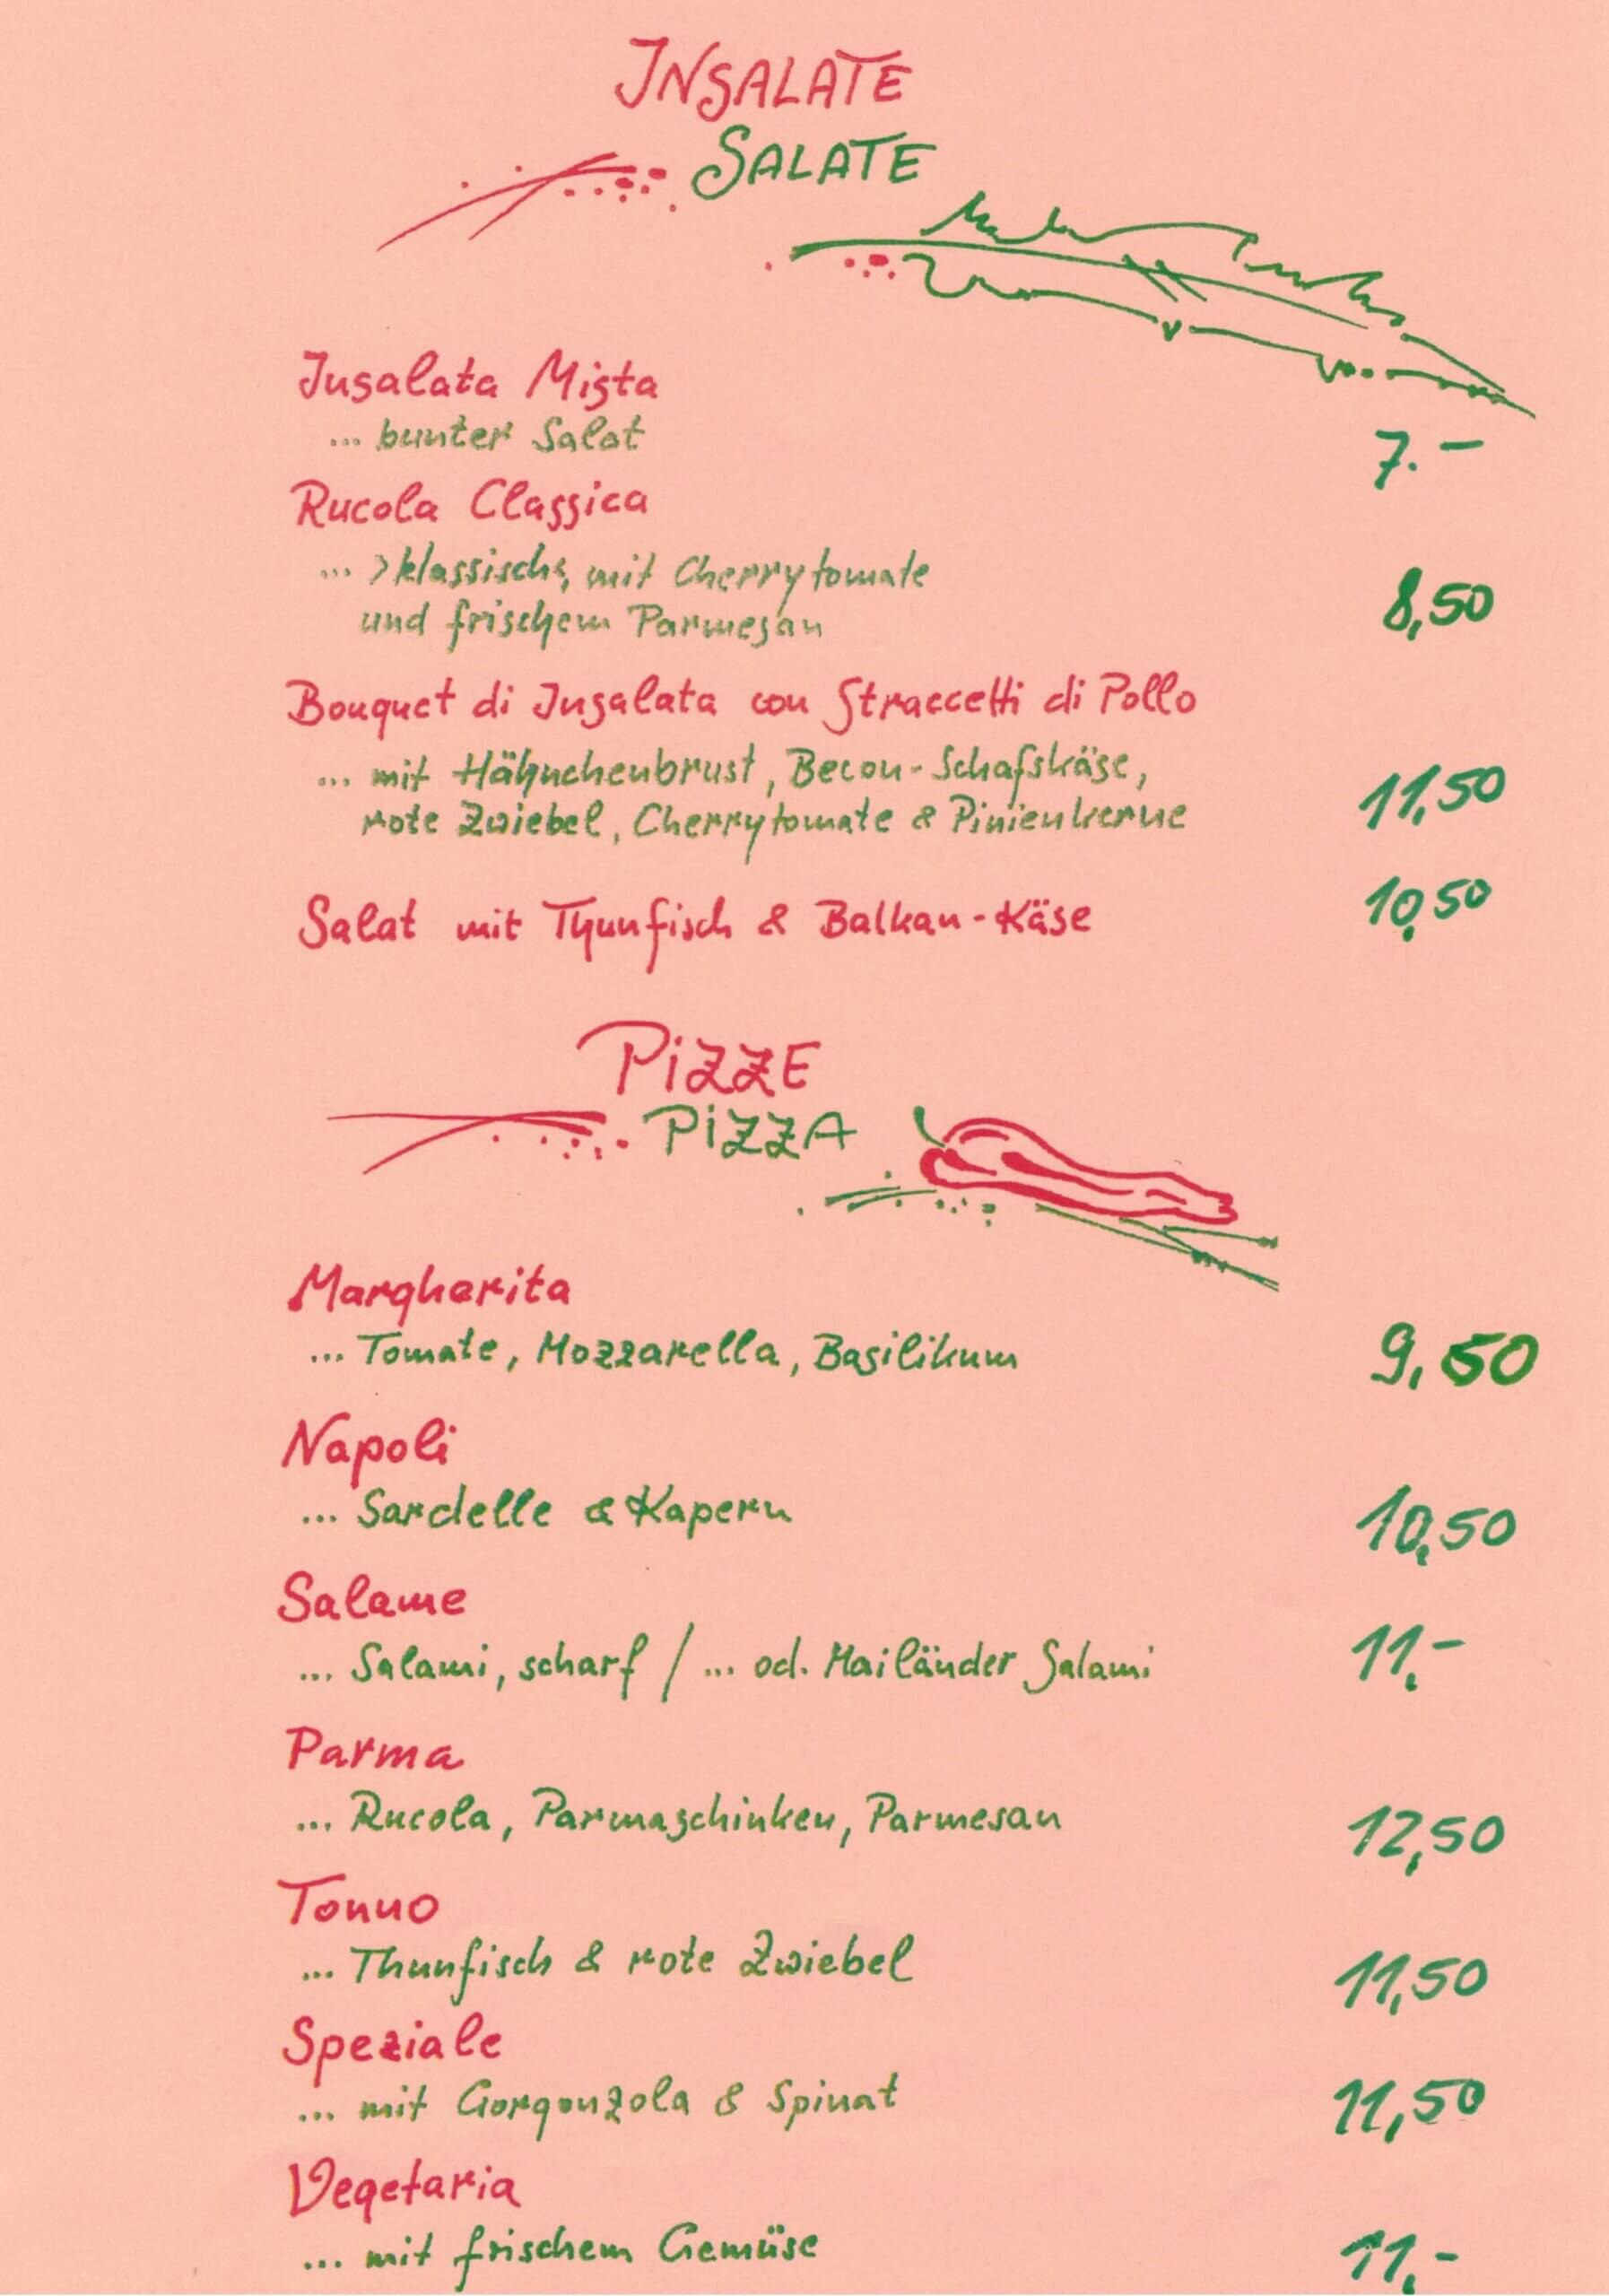 INSALATE
SALATE
Insalata Mista
... bunter Salat
7.-
Rucola Classica
... >klassisch<, mit Cherrytomate
und frischem Parmesan
8,50
Bouquet di Insalata con Straccetti di Pollo
... mit Hähnchenbrust, Becon-Schafskäse,
rote Zwiebel, Cherrytomate & Pinienkerne
11,50
Salat mit Thunfisch & Balkan-Käse
10,50
PiZZE
PiZZA
Margherita
... Tomate, Mozzarella, Basilikum
9,50
Napoli
... Sardelle & Kapern
10,50
Salame
... Salami, scharf / ... od. Mailänder Salami
11,-
Parma
... Rucola, Parmaschinken, Parmesan
12,50
Tonno
... Thunfisch & rote Zwiebel
11,50
Speziale
... mit Gorgonzola & Spinat
11,50
Vegetaria
... mit frischem Gemüse
11,-